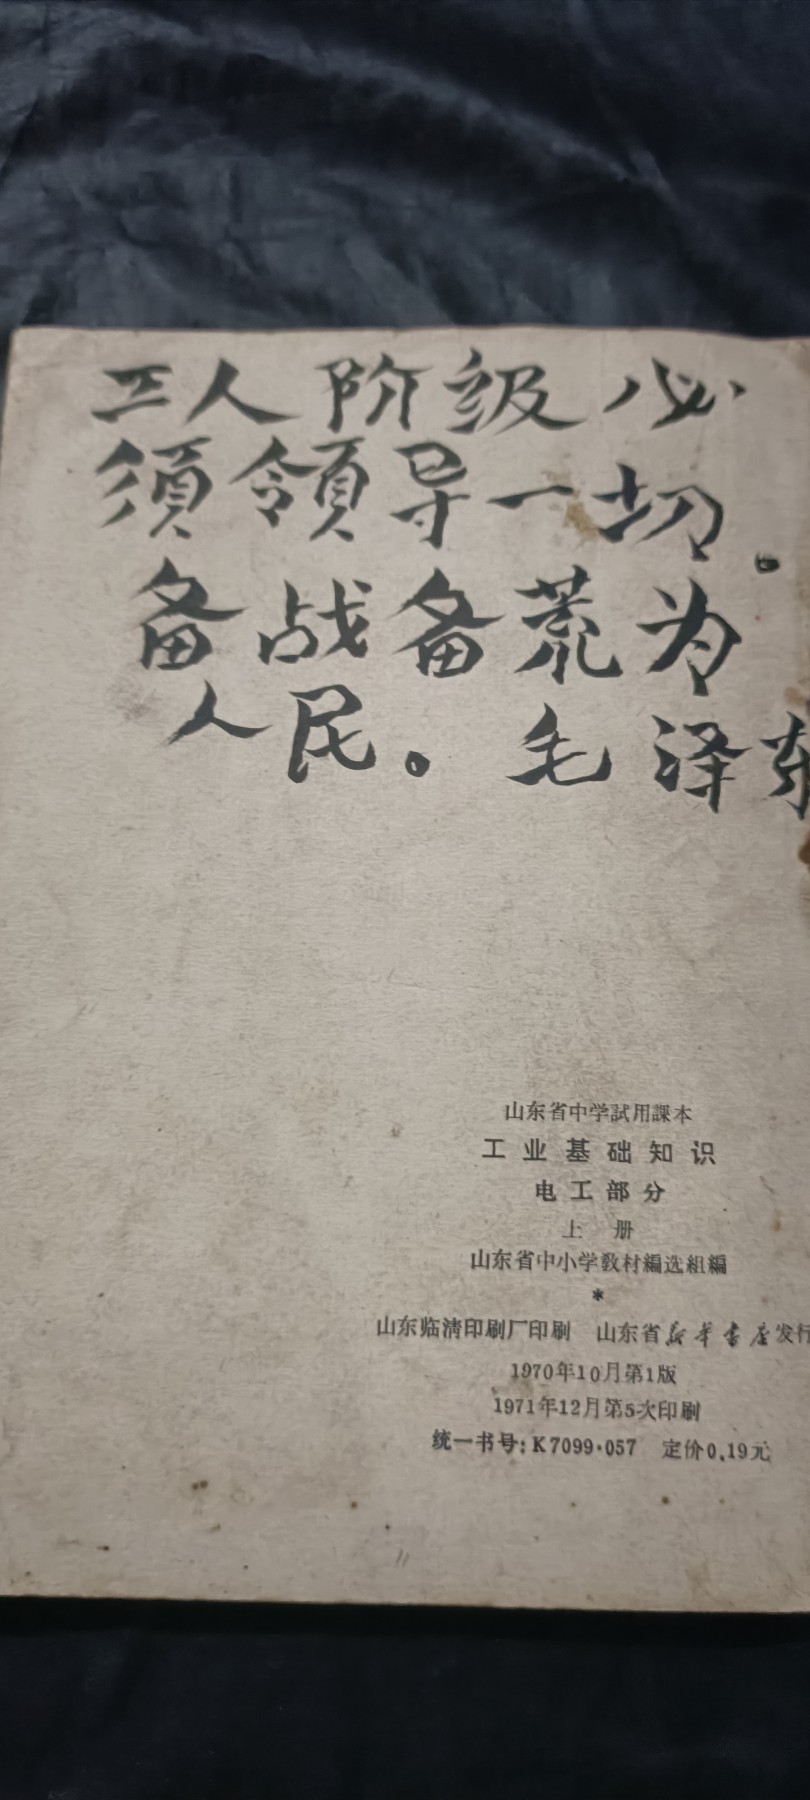 工人阶级必
须领导一切。
备战备荒为
人民。毛泽东
山东省中学試用課本
工业基础知识
电工部分
上册
山东省中小学教材編选組編
*
山东临清印刷厂印刷 山东省新华书店发行
1970年10月第1版
1971年12月第5次印刷
统一书号：K7099·057 定价0.19元